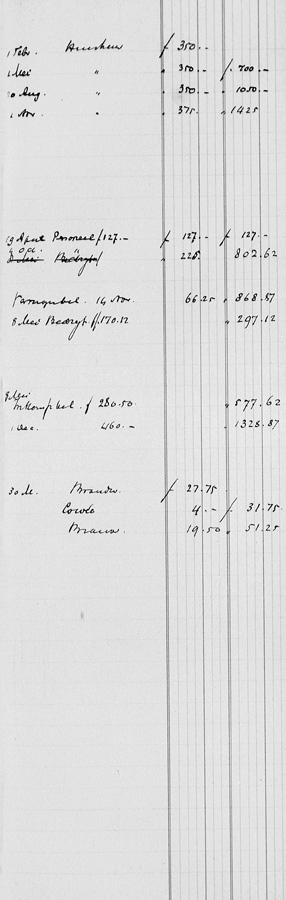 1 Febr. Huishuur ƒ 350.-
1 Mei " " 350.- ƒ 700.-
10 Aug. " " 350.- " 1050.-
1 Nov. " " 375. " 1425
19 April Personeel ƒ127.- ƒ 127.- ƒ 127.-
" 225. 802.62
14 Nov. 66.25 " 868.87
8 Mei Bedrijf ƒ170.12 " 297.12
8 Mei
Inkomst bel. ƒ 280.50. " 577.62
1 Dec. 460.- 1328.87
30 ƒ 27.75
4.- ƒ 31.75
19.50 " 51.25